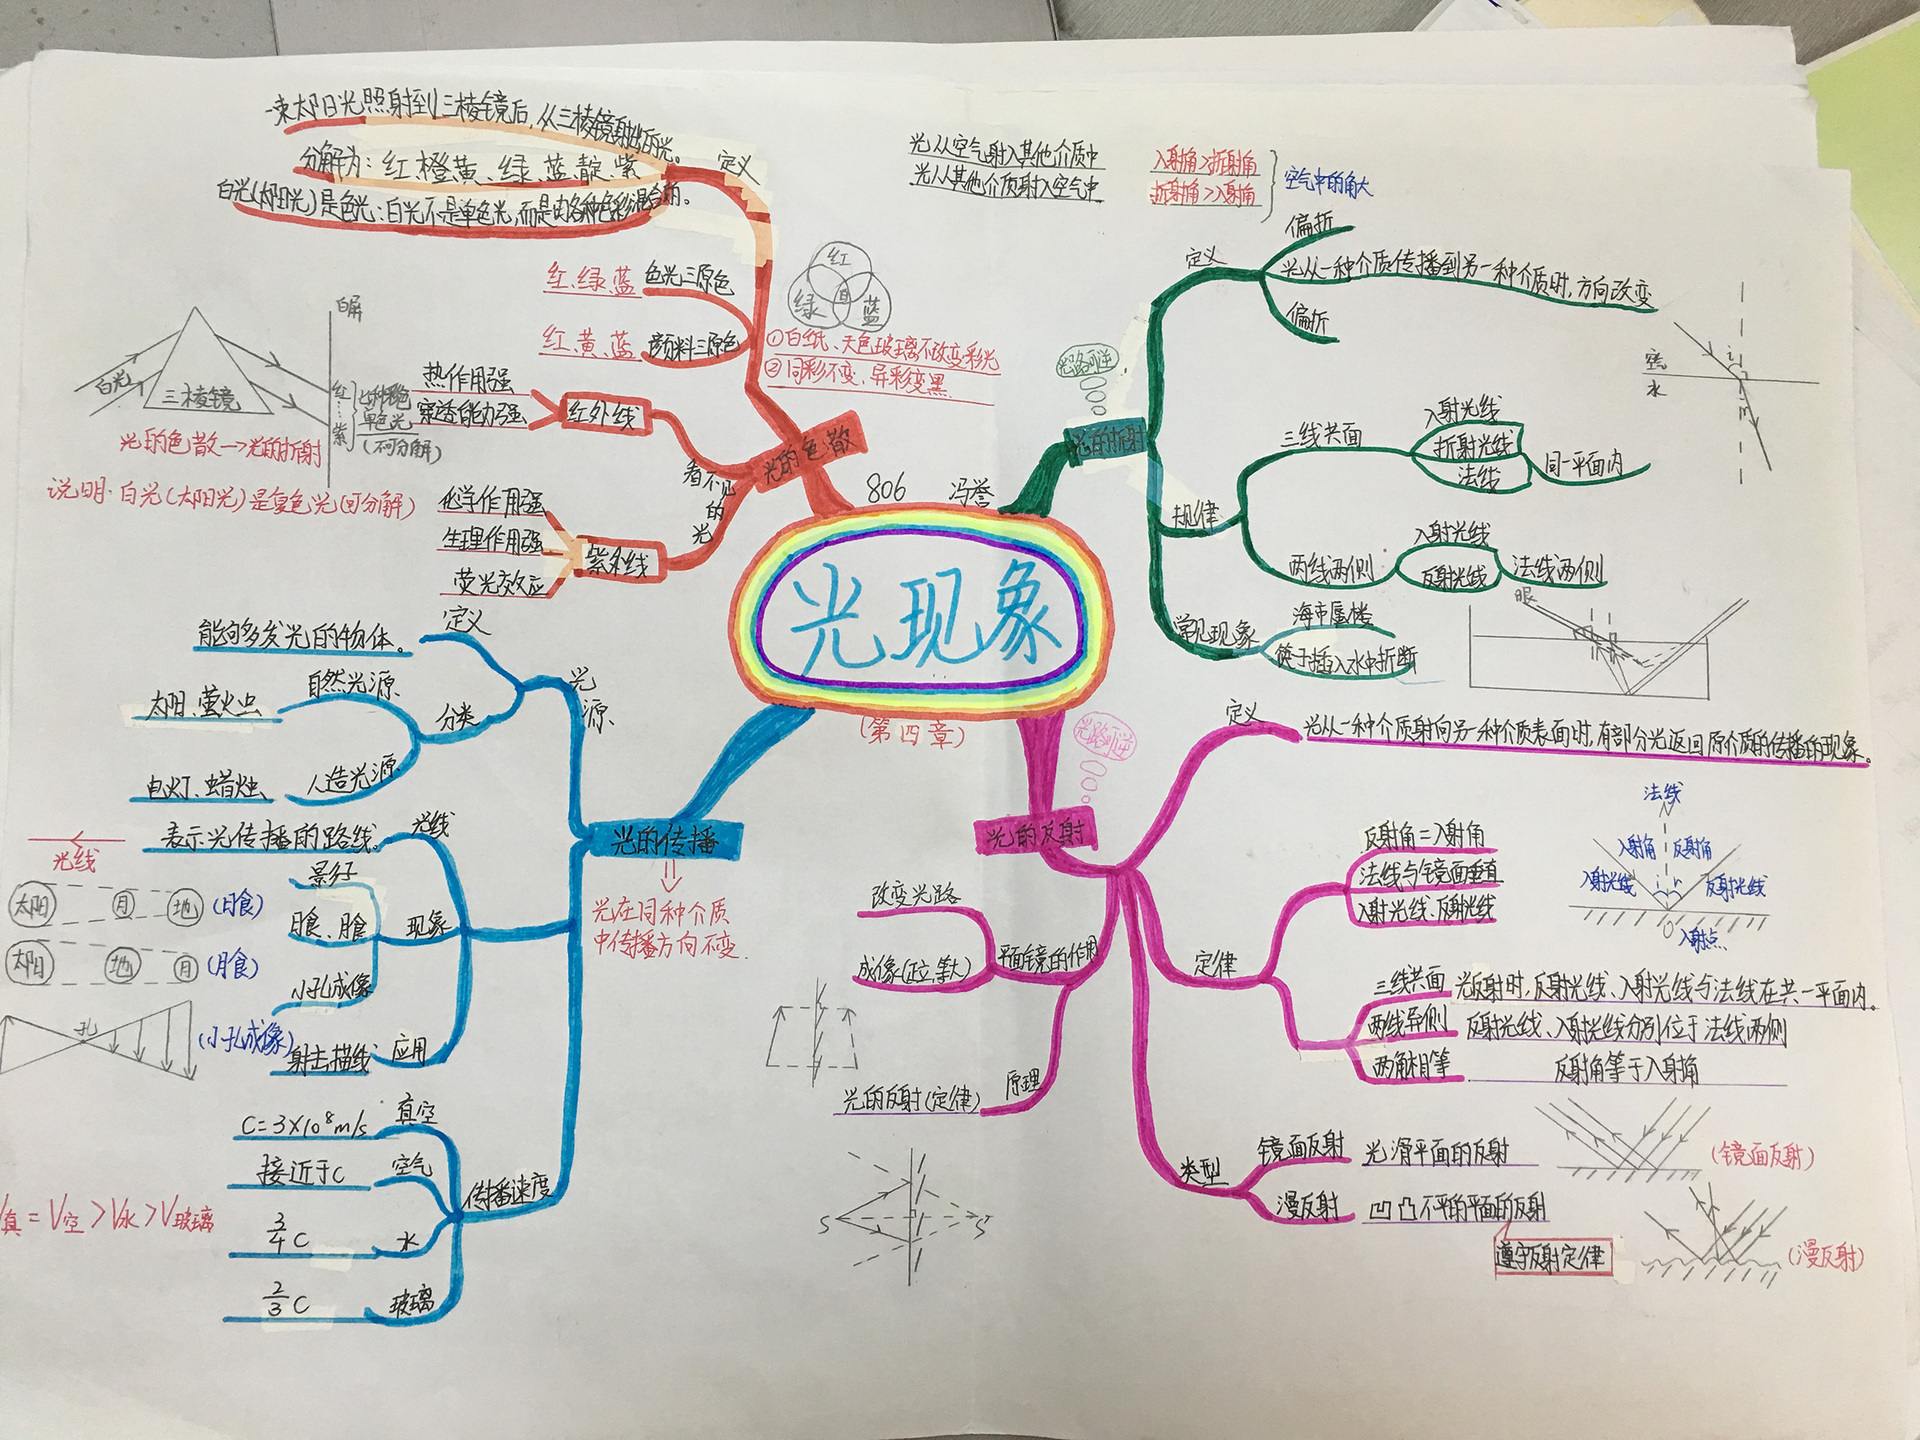 806 冯誉
光现象
(第四章)
光的色散
定义
一束太阳光照射到三棱镜后,从三棱镜射出的光。
分解为:红、橙、黄、绿、蓝、靛、紫
白光(太阳光)是色光:白光不是单色光,而是由各种色彩混合的。
红、绿、蓝 色光三原色
红、黄、蓝 颜料三原色
红
绿
白
蓝
①白纸、无色玻璃不改变彩光
②同彩不变、异彩变黑
看不见的光
红外线
热作用强
穿透能力强
紫外线
化学作用强
生理作用强
荧光效应
白屏
白光
三棱镜
红
紫
七种颜色
单色光
(不可分解)
光的色散→光的折射
说明:白光(太阳光)是复色光(可分解)
光的折射
光路可逆
光从空气射入其他介质中 入射角>折射角
光从其他介质射入空气中 折射角>入射角
空气中的角大
定义
偏折
光从一种介质传播到另一种介质时,方向改变
偏折
空
水
i
r
规律
三线共面
入射光线
折射光线
法线
同一平面内
两线两侧
入射光线
反射光线
法线两侧
常见现象
海市蜃楼
筷子插入水中折断
眼
光的传播
光在同种介质
中传播方向不变.
光源
定义
能够多发光的物体。
分类
自然光源
太阳、萤火虫
人造光源
电灯、蜡烛
光线
表示光传播的路线.
光线
现象
影子
日食、月食
小孔成像
太阳 月 地 (日食)
太阳 地 月 (月食)
孔 (小孔成像)
应用
射击描线
传播速度
真空
C=3×10⁸m/s
空气
接近于C
水
3/4 C
玻璃
2/3 C
V真=V空>V水>V玻璃
光的反射
光路可逆
定义
光从一种介质射向另一种介质表面时,有部分光返回原介质的传播的现象。
定律
反射角=入射角
法线与镜面垂直
入射光线、反射光线
三线共面 光反射时,反射光线、入射光线与法线在共一平面内。
两线异侧 反射光线、入射光线分别位于法线两侧
两角相等 反射角等于入射角
法线
入射角 反射角
入射光线 反射光线
i r
O 入射点
类型
镜面反射 光滑平面的反射
(镜面反射)
漫反射 凹凸不平的平面的反射
遵守反射定律
(漫反射)
平面镜的作用
改变光路
成像(正立、等大)
原理
光的反射(定律)
S S'